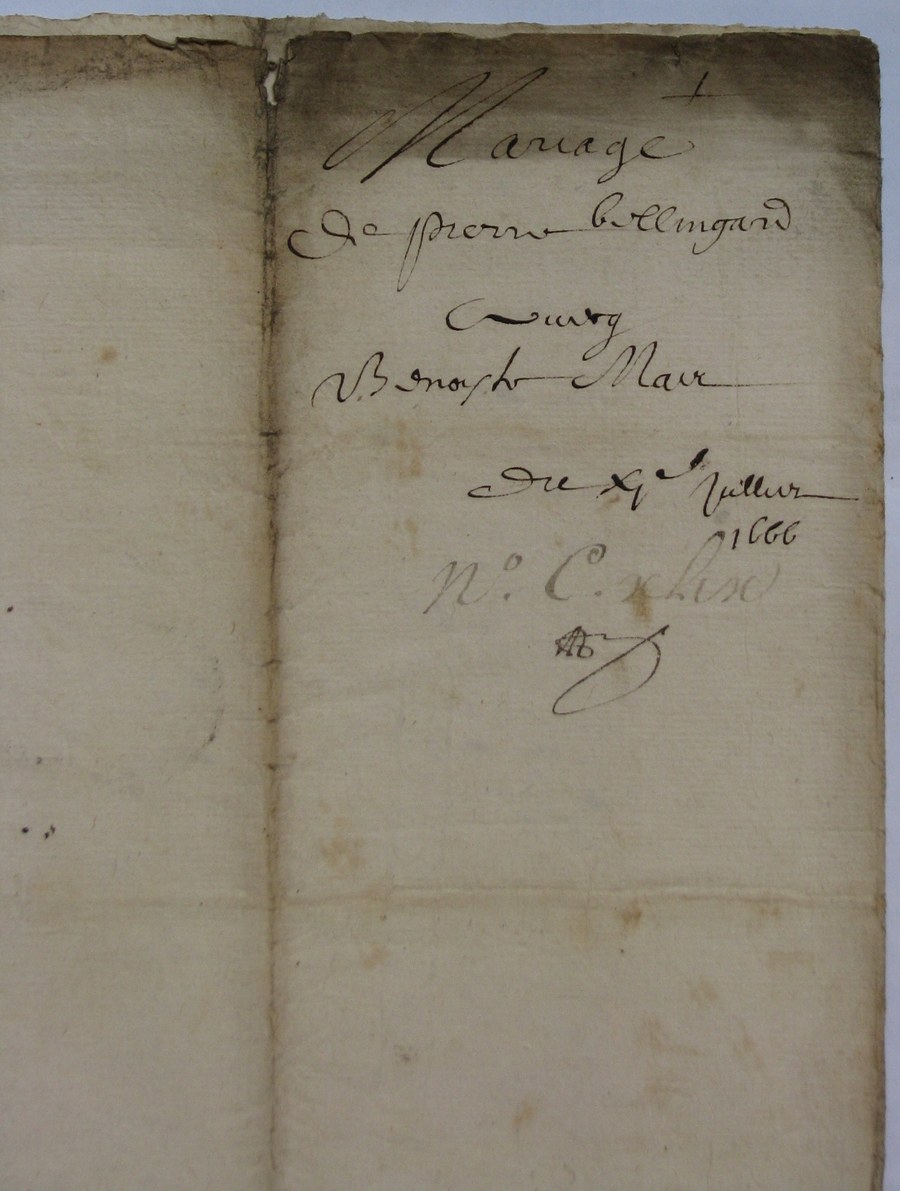 Mariage
de pierre bellingard
Avecq
Benoiste Mair
Du xje Juillet
1666
No. C.